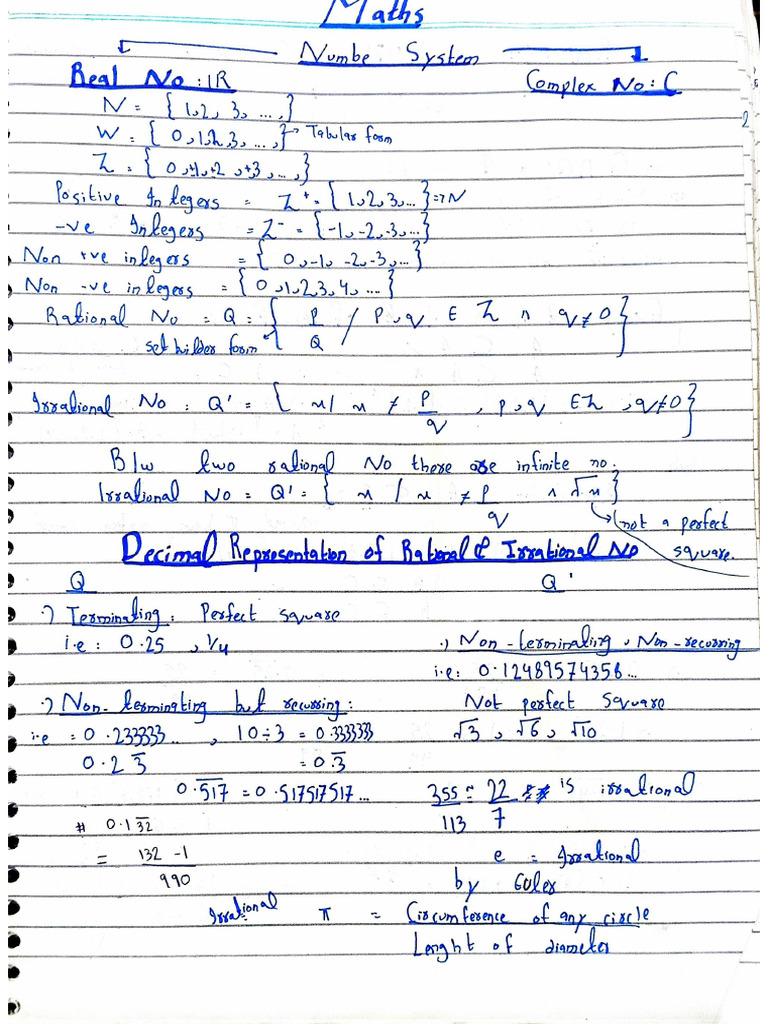 Maths
Numbe System
Real No : IR
Complex No : C
N = { 1, 2, 3, ..., }
W = { 0, 1, 2, 3, ..., } → Tabular form
2
Z = { 0, ±1, ±2, ±3, ..., }
Positive Integers = Z⁺ = { 1, 2, 3, ... } => N
-ve Integers = Z⁻ = { -1, -2, -3, ... }
Non +ve integers = { 0, -1, -2, -3, ... }
Non -ve integers = { 0, 1, 2, 3, 4, .... }
Rational No = Q = { P/Q / P, q ∈ Z ∧ q ≠ 0 }
set builder form
Irrational No = Q' = { x / x ≠ P/q , P, q ∈ Z , q ≠ 0 }
B/w two rational No there are infinite no.
Irrational No = Q' = { x / x ≠ P/q ∧ √x }
(not a perfect
square.
Decimal Representation of Rational & Irrational No
Q
Q'
·) Terminating : Perfect square
i.e : 0.25 , 1/4
·) Non-terminating, Non-recurring
i.e : 0.12489574358...
·) Non-terminating but recurring :
Not perfect square
i.e = 0.233333.. , 10÷3 = 0.3333333
√3 , √6 , √10
0.23̅ = 0.3̅
0.5̅1̅7̅ = 0.517517517...
355/113 = 22/7 is irrational
# 0.13̅2̅
= 132 -1 / 990
e = Irrational
by Euler
Irrational π = Circumference of any circle
Lenght of diameter